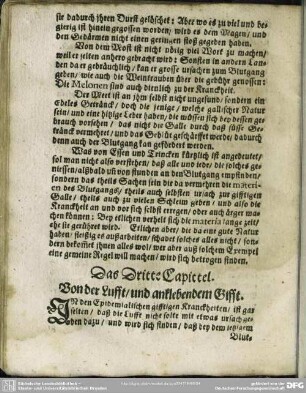 sie dadurch ihren Durst gelöschet: Aber wo es zu viel und be-
gierig ist hinein gegossen worden/ wird es dem Magen/ und
den Gedärmen nicht einen geringen stoß gegeben haben.
Von dem Most ist nicht nötig viel Wort zu machen/
weil er selten anhero gebracht wird: Sonsten in andern Lan-
den da er gebräuchlich/ kan er grosse ursachen zum Blutgang
geben/ wie auch die Weintrauben über die gebühr genossen:
Die Melonen sind auch dienlich zu der Kranckheit.
Der Meet ist an ihm selbst nicht ungesund/ sondern ein
edeles Geträncke/ doch die jenige/ welche gallischer Natur
sein/ und eine hitzige Leber haben/ die müssen sich bey dessen ge-
brauch vorsehen/ das nicht die Galle durch daß süsse Ge-
tränck vermehret/ und das Geblüt geschärffet werde/ dadurch
denn auch der Blutgang kan gefördert werden.
Was von Essen und Trincken kürtzlich ist angedeutet/
sol man nicht also verstehen/ daß alle und jede/ die solches ge-
niessen/ alßbald üm von stunden an den Blutgang empfinden/
sondern das theils Sachen sein die da vermehren die materi-
en des Blutgangs/ theils auch selbsten ursach zur gifftigen
Galle/ theils auch zu vielen Schleim geben/ und also die
Kranckheit an und vor sich selbst erregen/ oder auch ärger ma-
chen können: Bey etlichen verhelt sich die materia lange zeit/
ehe sie gerühret wird. Etlichen aber/ die da eine gute Natur
haben/ fleißig es außarbeiten/ schadet solches alles nicht/ son-
dern bekommet ihnen alles wol/ wer aber auß solchem Exempel
eine gemeine Regel will machen/ wird sich betrogen finden.
Das Dritte Capittel.
Von der Lufft/ und anklebendem Gifft.
IN den Epidemialischen gifftigen Kranckheiten/ ist gar
selten/ daß die Lufft nicht solte mit etwas ursach ge-
ben dazu/ und wird sich finden/ daß bey dem jetzigem
Blut-